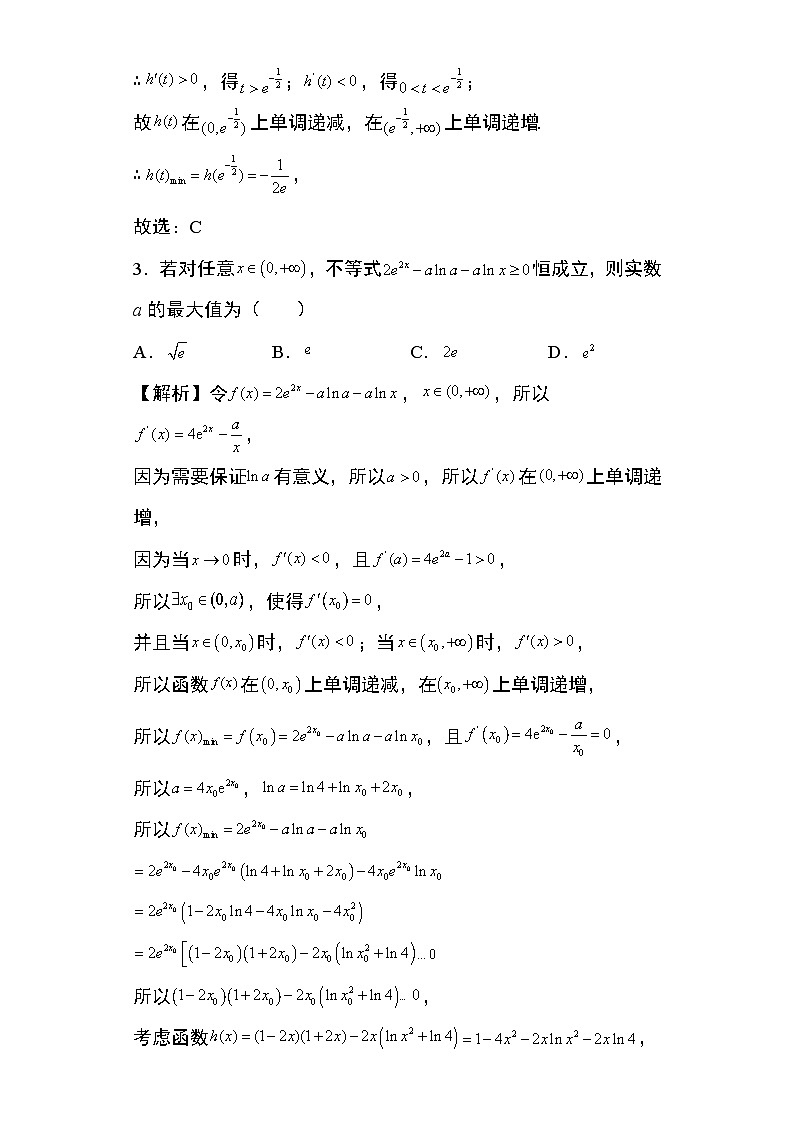 ∴h′(t)>0，得t>e^{-1/2}；h'(t)<0，得0<t<e^{-1/2}；
故h(t)在(0,e^{-1/2})上单调递减，在(e^{-1/2},+∞)上单调递增.
∴h(t)_{min}=h(e^{-1/2})=-1/(2e)，
故选：C
3．若对任意x∈(0,+∞)，不等式2e^{2x}-aln a-aln x≥0恒成立，则实数
a 的最大值为（　　）
A．√e B．e C．2e D．e²
【解析】令f(x)=2e^{2x}-aln a-aln x，x∈(0,+∞)，所以
f'(x)=4e^{2x}-a/x，
因为需要保证ln a有意义，所以a>0，所以f'(x)在(0,+∞)上单调递
增，
因为当x→0时，f′(x)<0，且f'(a)=4e^{2a}-1>0，
所以∃x₀∈(0,a)，使得f′(x₀)=0，
并且当x∈(0,x₀)时，f′(x)<0；当x∈(x₀,+∞)时，f′(x)>0，
所以函数f(x)在(0,x₀)上单调递减，在(x₀,+∞)上单调递增，
所以f(x)_{min}=f(x₀)=2e^{2x₀}-aln a-aln x₀，且f'(x₀)=4e^{2x₀}-a/x₀=0，
所以a=4x₀e^{2x₀}，ln a=ln 4+ln x₀+2x₀，
所以f(x)_{min}=2e^{2x₀}-aln a-aln x₀
=2e^{2x₀}-4x₀e^{2x₀}(ln 4+ln x₀+2x₀)-4x₀e^{2x₀}ln x₀
=2e^{2x₀}(1-2x₀ln 4-4x₀ln x₀-4x₀²)
=2e^{2x₀}[(1-2x₀)(1+2x₀)-2x₀(ln x₀²+ln 4)…0
所以(1-2x₀)(1+2x₀)-2x₀(ln x₀²+ln 4)… 0，
考虑函数h(x)=(1-2x)(1+2x)-2x(ln x²+ln 4)=1-4x²-2xln x²-2xln 4，